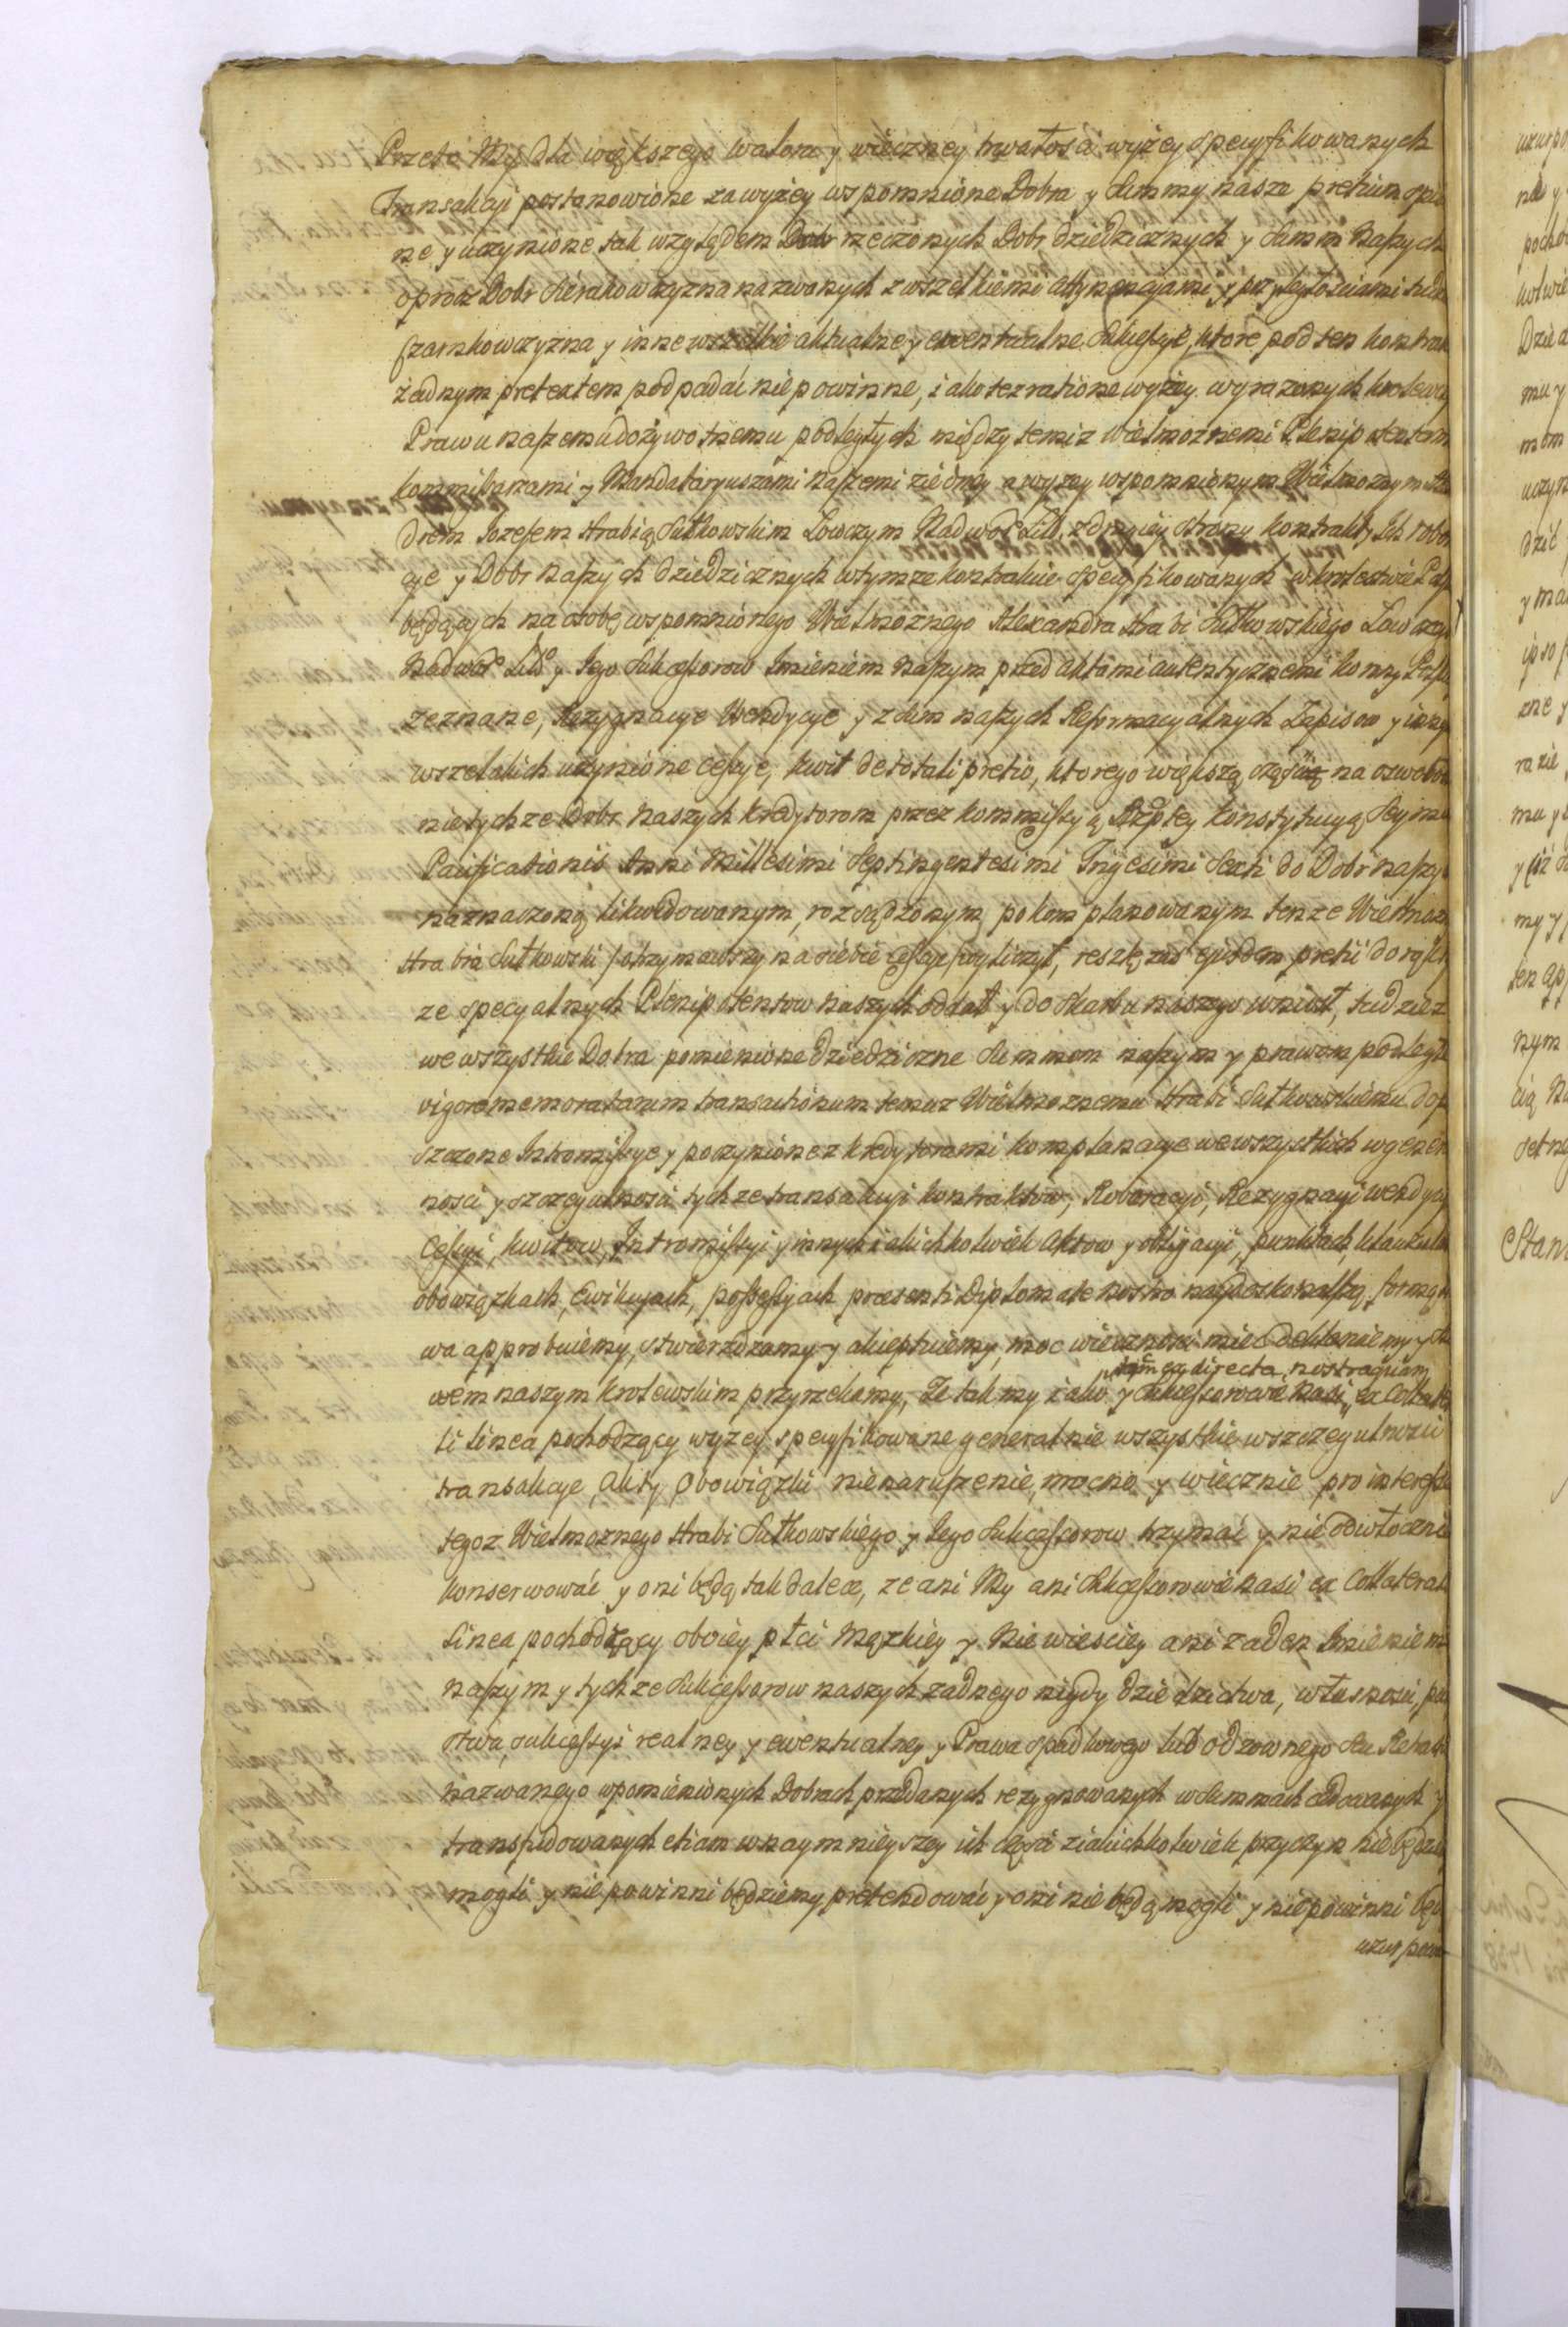 Przeto My dla większego waloru y wieczney trwałości wyżey specyfikowanych
Transakcyi postanowione za wyżey wspomnione Dobra y Summy nasze pretium
ne y uczynione tak względem rzeczonych Dobr dziedzicznych y Summ naszych
oprocz Dobr Sierakowczyzna nazwonych z wszelkiemi attynencyami y przyległościami
y inne wszelkie aktualne y ewentualne Sukcessye, ktore pod ten kontrak
żadnym pretextem podpadać nie powinne, iako też ratione wyżey wyrazonych krolews
Prawu naszemu dożywotnemu podległych między temiz Wielmoznemi Plenipotentam
kommissarzami y Mandataryuszami naszemi ziedney a wyżey wspomnionym Wielmoznym
drem Jozefem Hrabią Sułkowskim Łowczym Nadwor Litt. z drugiey strony kontrakty, Ich robor
cye y Dobr naszych dziedzicznych w tymze kontrakcie specyfikowanych w krolestwie Pol
będących na osobę wspomnionego Wielmoznego Alexandra Hrabi Sułkowskiego Łowczego
Nadwor° Litt° y Jego Sukcessorow Imieniem naszym przed aktami autentycznemi
zeznane, Rezygnacye Wendycye y z Sum naszych Reformacyalnych Zapisow y inny
wszelakich uczynione Cessye, kwit de totali pretio, ktorego większą częścią na oswobo
nie tychze Dobr naszych kredytorom przez kommissyą Rzptey konstytucyą Seymu
Pacificationis Anni Millesimi Septingentesimi Trigesimi Sexti do Dobr naszy
naznaczoną likwidowanym, rozsądzonym, pokomplanowanym tenze Wielmoz
Hrabia Sułkowski /: otrzymawszy na siebie Cessye wyliczył, resztę zaś ejusdem pretii do rąk
ze specyalnych Plenipotentow naszych oddał y do skarbu naszego wniosł, tudziez
we wszystkie Dobra pomienione dziedziczne Summom naszym y prawom podległe
vigore memoratarum transactionum temuz Wielmoznemu Hrabi Sułkowskiemu dop
szczone Intromissye y poczynione z kredytorami komplanacye we wszystkich w gener
ności y szczegulności tychze transakcyi kontraktow, Roboracyi, Rezygnacyi wendycy
Cessyi, kwitow, Intromissyi y innych iakichkolwiek Aktow y obligacyi, punktach, klauzula
obowiązkach, Ewikcyach, possessyach praesenti Diplomate nostro naydoskonalszą formą
wa approbuiemy, stwierdzamy y akceptuiemy, moc wieczności mieć deklaruiemy y
tam ex directa nostra quam
wem naszym krolewskim przyrzekamy, Ze tak my iako y Sukcessorowie nasi, ex Collate
li linea pochodzący wyzey specyfikowane generalnie wszystkie w szczegulności
transakcye Akty Obowiązki nienaruszenie, mocno y wiecznie pro interesse
tegoz Wielmoznego Hrabi Sułkowskiego y Jego Sukcessorow trzymać y nieodwłocznie
konserwować y oni będą tak dalece, ze ani My ani Sukcessorowie nasi ex Collateral
linea pochodzący oboiey płci Mązkiey y Niewieściey ani zaden Imieniem
naszym y tychze Sukcessorow naszych zadnego nigdy dziedzictwa, własności, pa
stwa, sukcessyi realney y ewentualney y Prawa spadkowego lub odzownego seu
nazwanego w pomienionych Dobrach przedanych rezygnowanych w Summach cedowanych y
transfudowanych etiam w naymnieyszey ich części z iakichkolwiek przyczyn nie będziem
mogli y nie powinni będziemy pretendować y oni nie będą mogli y nie powinni będ
uzurpow